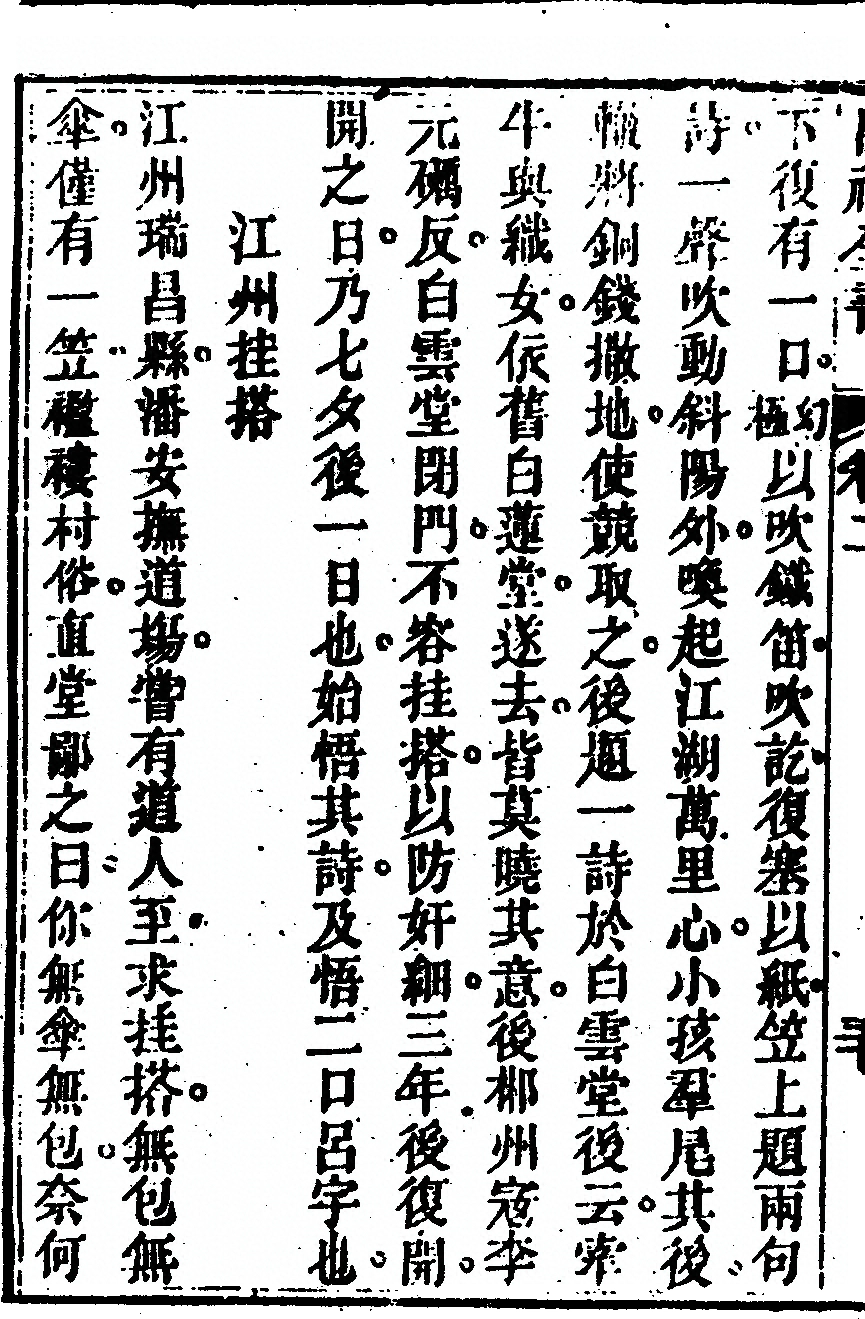 下復有一口幻極以吹鐵笛吹訖復塞以紙笠上題兩句
詩一聲吹動斜陽外喚起江湖萬里心小孩羣尾其後
輙將銅錢撒地使競取之後題一詩於白雲堂後云牽
牛與織女依舊白蓮堂遂去皆莫曉其意後郴州寇李
元礪反白雲堂閉門不容挂搭以防奸細三年後復開
開之日乃七夕後一日也始悟其詩及悟二口呂字也
江州挂搭
江州瑞昌縣潘安撫道塲嘗有道人至求挂搭無包無
傘僅有一笠襤褸村俗直堂鄙之曰你無傘無包奈何